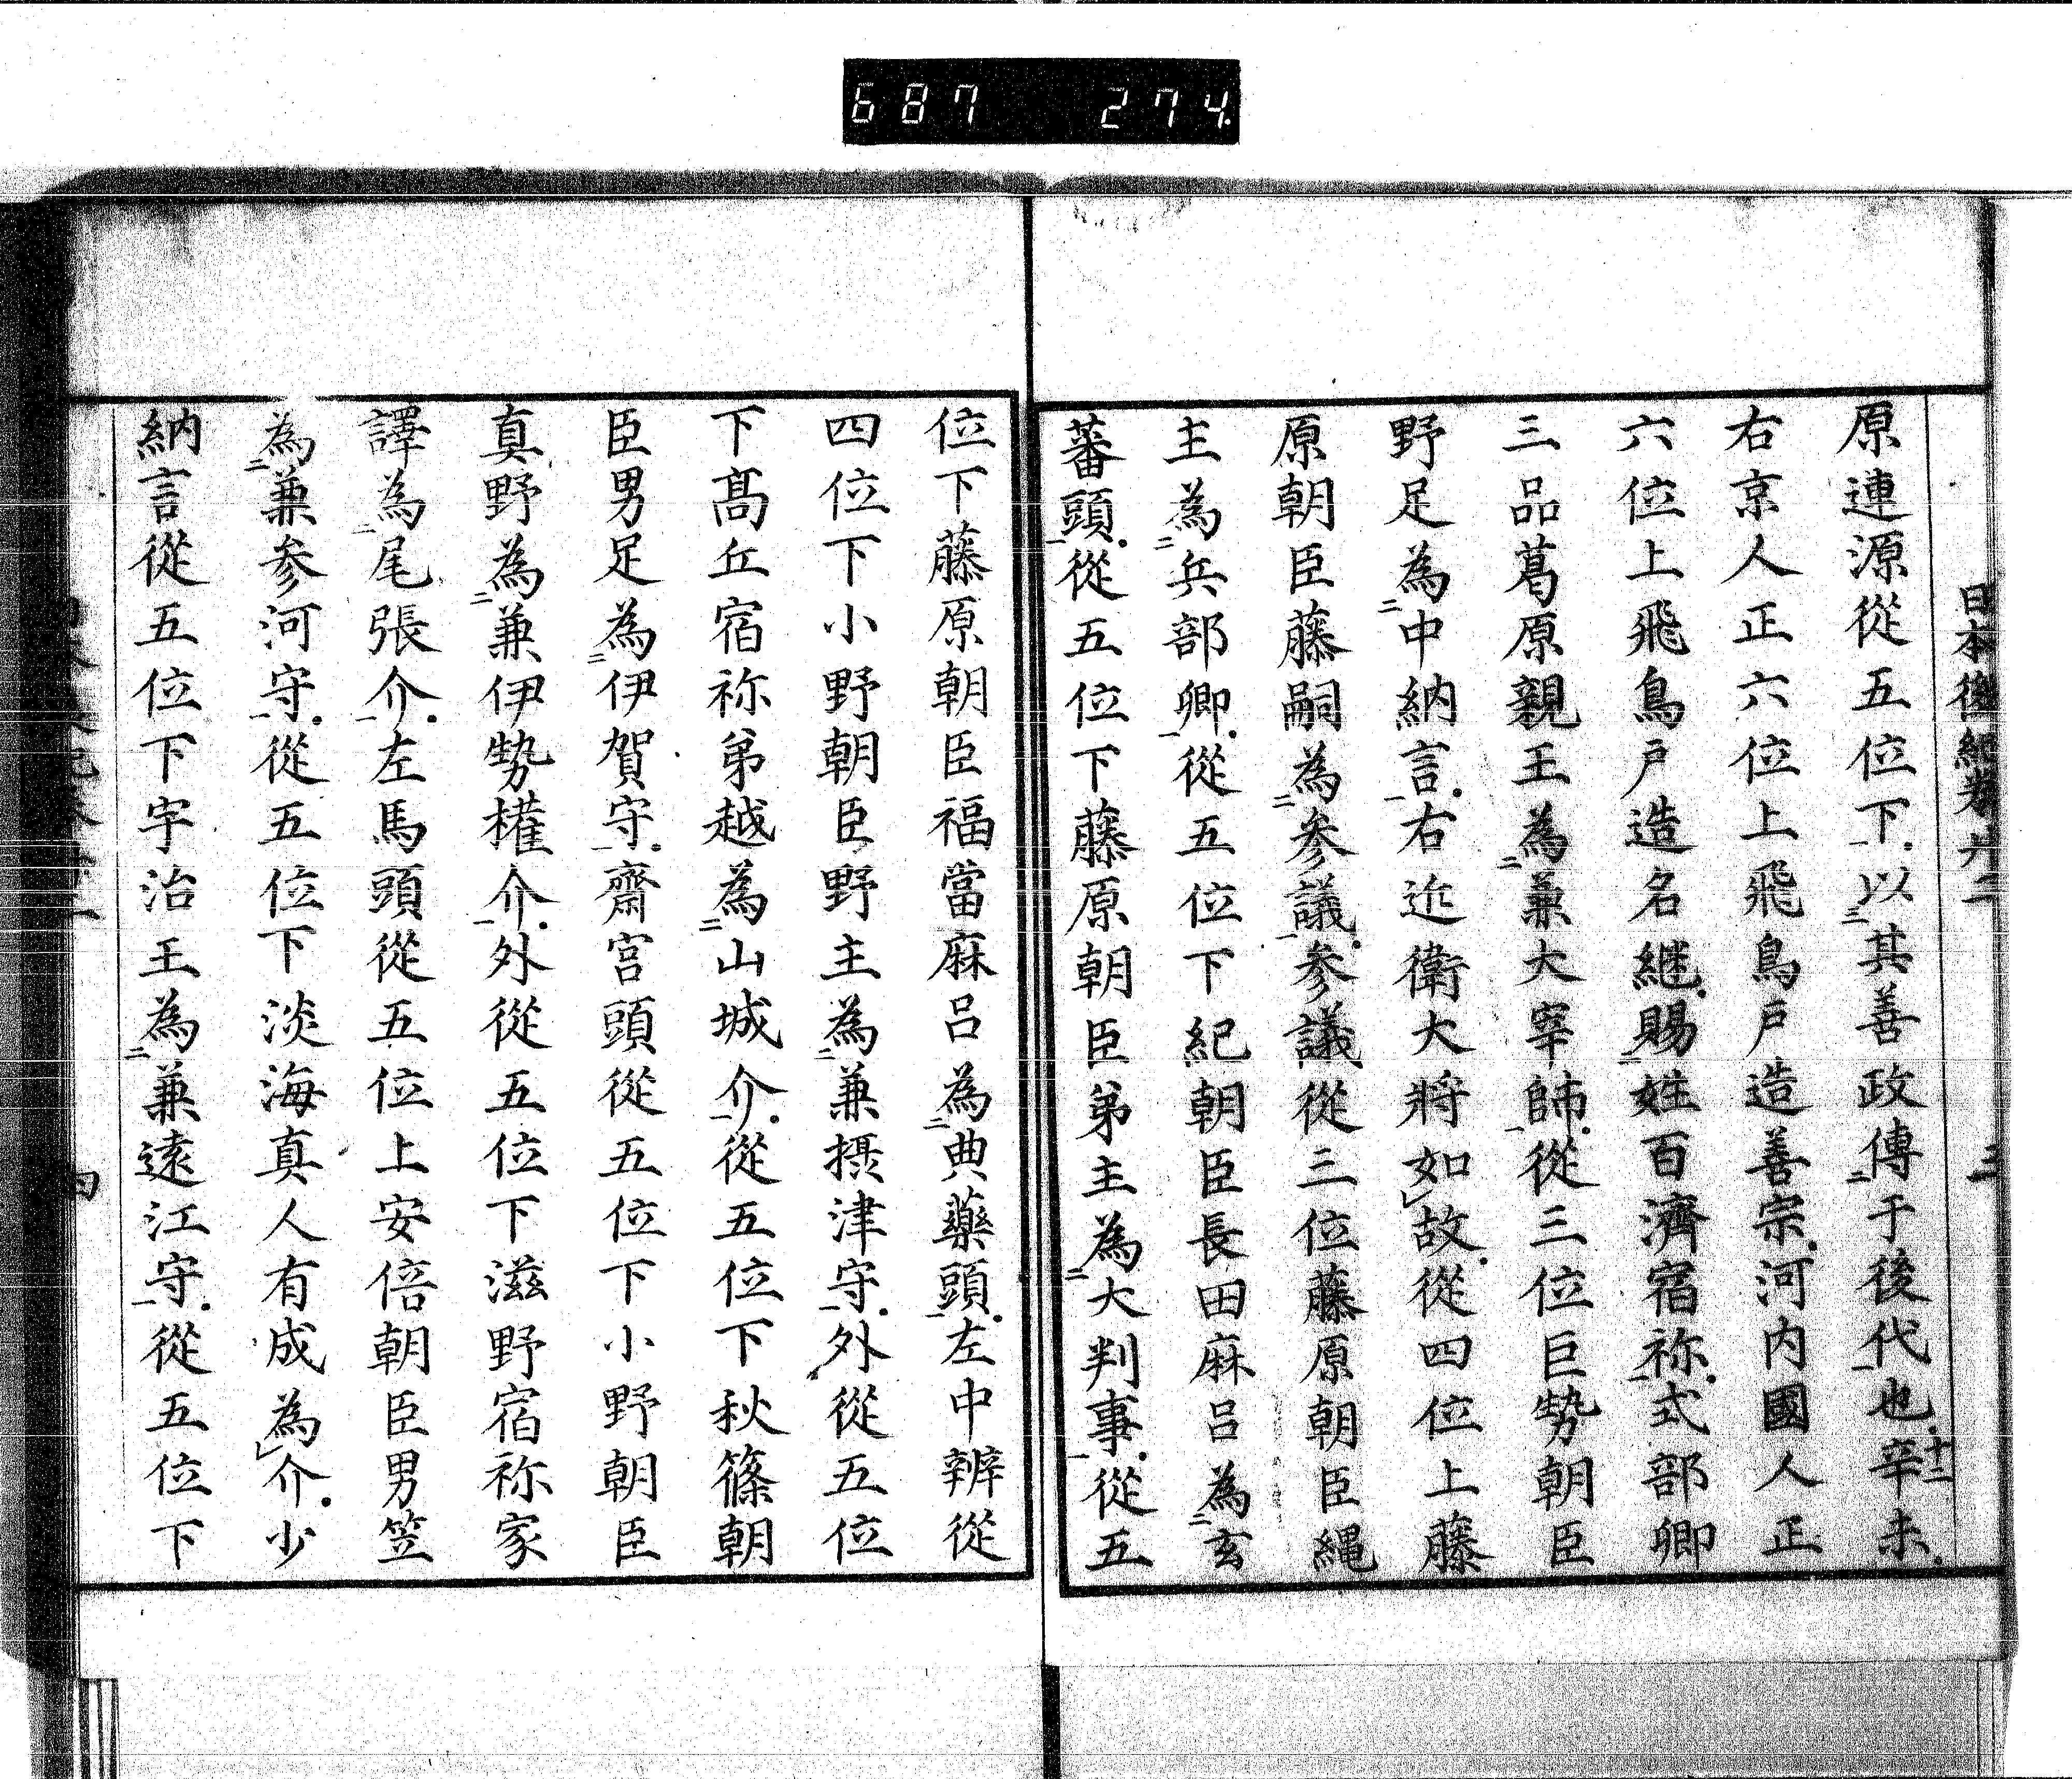 687 274.
日本後紀卷廿二 三
原連源從五位下以其善政傳于後代也辛未十二
右京人正六位上飛鳥戸造善宗河内國人正
六位上飛鳥戸造名継賜姓百濟宿祢式部卿
三品葛原親王為兼大宰帥從三位巨勢朝臣
野足為中納言右近衛大將如故從四位上藤
原朝臣藤嗣為参議参議從三位藤原朝臣縄
主為兵部卿從五位下紀朝臣長田麻呂為玄
蕃頭從五位下藤原朝臣弟主為大判事從五
位下藤原朝臣福當麻呂為典藥頭左中辨從
四位下小野朝臣野主為兼摂津守外從五位
下髙丘宿祢弟越為山城介從五位下秋篠朝
臣男足為伊賀守齋宮頭從五位下小野朝臣
真野為兼伊勢權介外從五位下滋野宿祢家
譯為尾張介左馬頭從五位上安倍朝臣男笠
為兼参河守從五位下淡海真人有成為介少
納言從五位下宇治王為兼遠江守從五位下
四